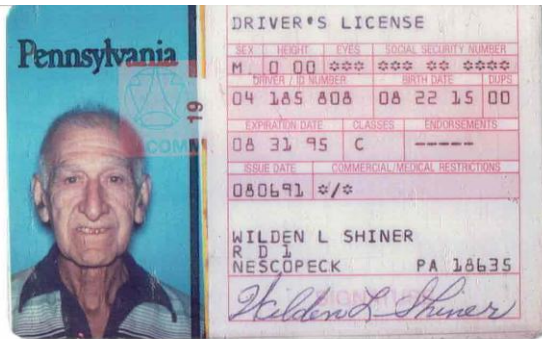 Pennsylvania
19
COMM
DRIVER'S LICENSE
SEX HEIGHT EYES SOCIAL SECURITY NUMBER
M 0 00 *** *** ** ****
DRIVER / ID NUMBER BIRTH DATE DUPS
04 185 808 08 22 15 00
EXPIRATION DATE CLASSES ENDORSEMENTS
08 31 95 C -----
ISSUE DATE COMMERCIAL/MEDICAL RESTRICTIONS
080691 */*
WILDEN L SHINER
R D 1
NESCOPECK PA 18635
SIGNATURE
Wilden L. Shiner